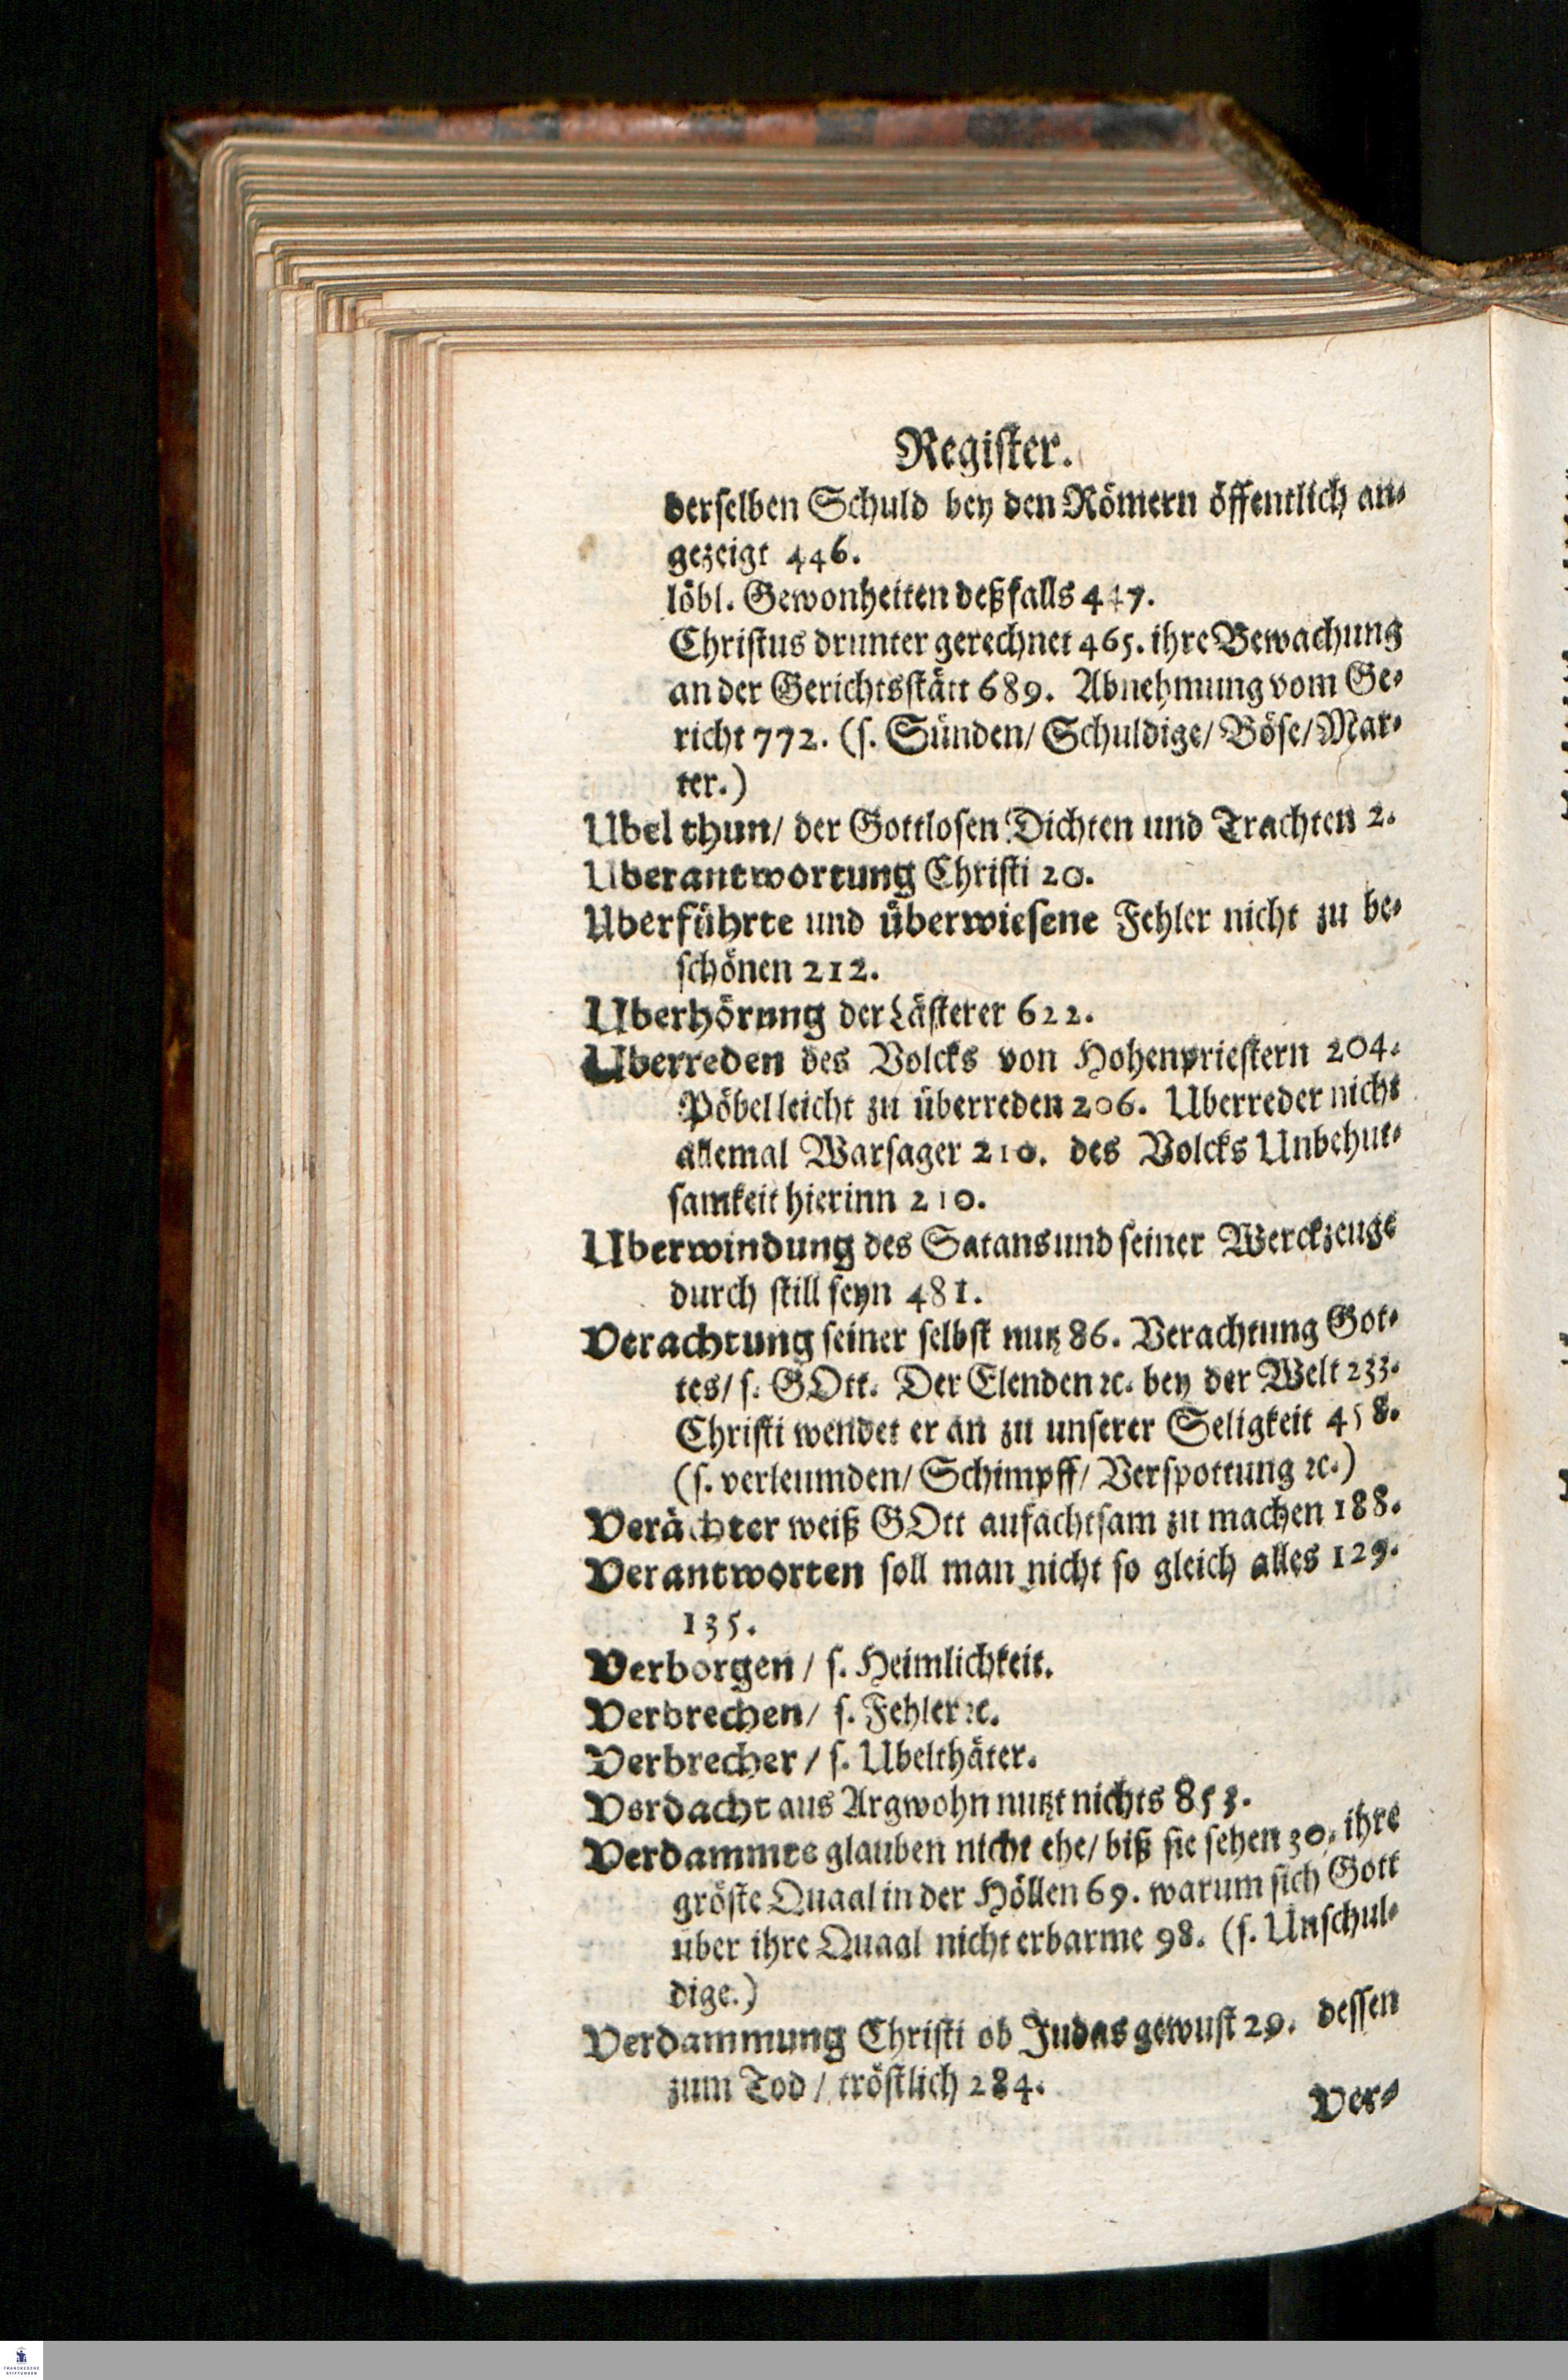 Register.
derselben Schuld bey den Römern öffentlich an-
gezeigt 446.
löbl. Gewonheiten deßfalls 447.
Christus drunter gerechnet 465. ihre Bewachung
an der Gerichtsstätt 689. Abnehmung vom Ge-
richt 772. (s. Sünden/ Schuldige/ Böse/ Mar-
ter.)
Ubel thun/ der Gottlosen Dichten und Trachten 2.
Uberantwortung Christi 20.
Uberführte und überwiesene Fehler nicht zu be-
schönen 212.
Uberhörung der Lästerer 622.
Uberreden des Volcks von Hohenpriestern 204.
Pöbel leicht zu überreden 206. Uberreder nicht
allemal Warsager 210. des Volcks Unbehut-
samkeit hierinn 210.
Uberwindung des Satans und seiner Werckzeuge
durch still seyn 481.
Verachtung seiner selbst nutz 86. Verachtung Got-
tes/ s. GOtt. Der Elenden ꝛc. bey der Welt 233.
Christi wendet er an zu unserer Seligkeit 458.
(s. verleumden/ Schimpff/ Verspottung ꝛc.)
Verächter weiß GOtt aufachtsam zu machen 188.
Verantworten soll man nicht so gleich alles 129.
135.
Verborgen/ s. Heimlichkeit.
Verbrechen/ s. Fehler ꝛc.
Verbrecher/ s. Ubelthäter.
Verdacht aus Argwohn nutzt nichts 853.
Verdammte glauben nicht ehe/ biß sie sehen 30. ihre
gröste Quaal in der Höllen 69. warum sich Gott
über ihre Quaal nicht erbarme 98. (s. Unschul-
dige.)
Verdammung Christi ob Judas gewust 29. dessen
zum Tod/ tröstlich 284.
Ver-
FRANCKESCHE
STIFTUNGEN